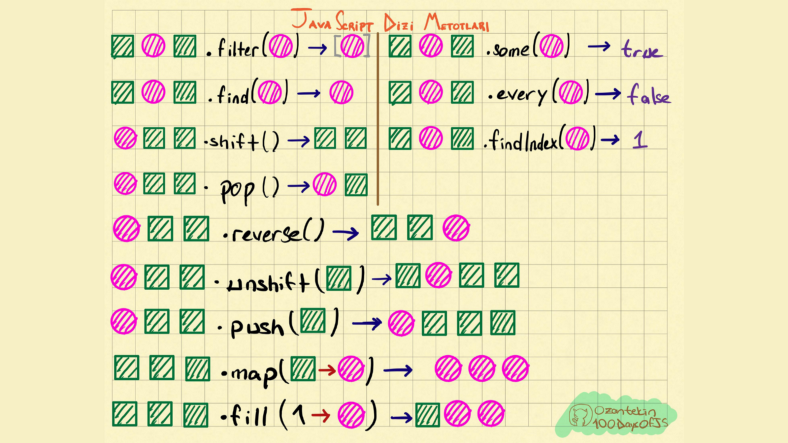 JAVA SCRIPT DİZİ METOTLARI
.filter( ) → [ ]
.find( ) →
.shift() →
.pop() →
.some( ) → true
.every( ) → false
.findIndex( ) → 1
.reverse() →
.unshift( ) →
.push( ) →
.map( → ) →
.fill (1 → ) →
Ozantekin
100DaysOfJS